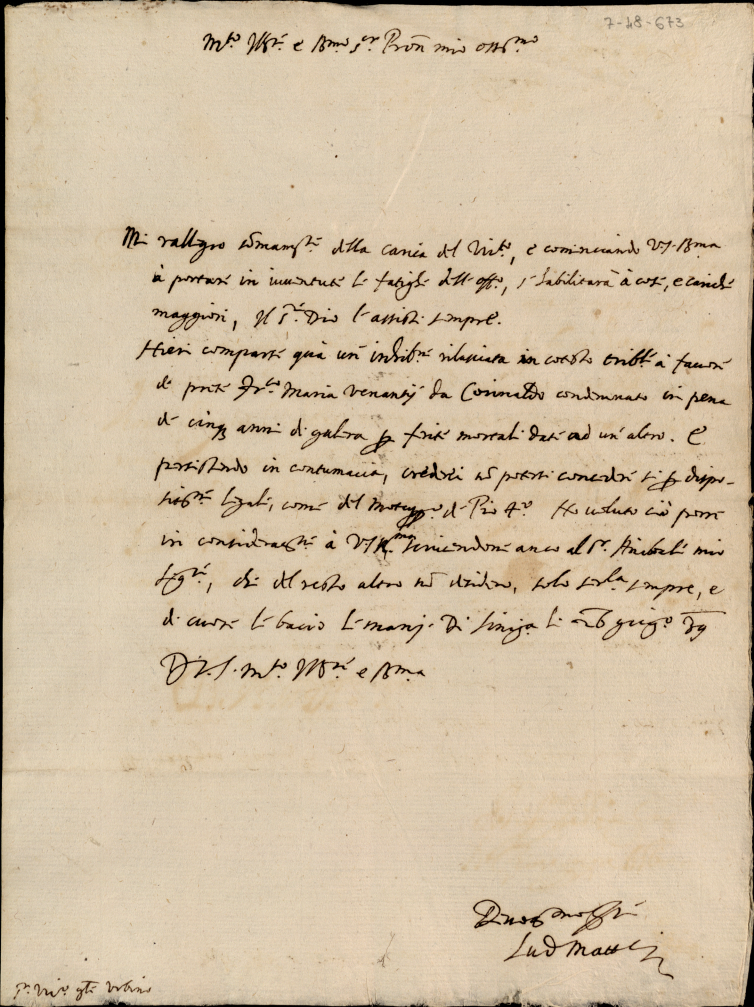 7-48-673
m.to Ill.re e R.mo s.or Pron mio oss.mo
Mi rallegro della carica del Vic.to, e cominciando V.S. R.ma
à portare in iuventute le fatighe dell'off.o, s'habilitarà à cose, e carichi
maggiori, Il s.r Dio l'assisti sempre.
Hieri comparse quà un' rilasciata in cotesto à favore
de prete Fr.co Maria Venantij da Corinaldo condennato in pena
de cinq anni di galera p ferite mortali date ad un' altro. E
persistendo in contumacia, crederei nõ potersi concedere sì p dispo-
sit.ne legali, come del Motup.o de Pio 4.o Ho voluto ciò porre
in considerat.ne à V.S. R.ma scrivendone anco al s.r Anibale mio
che del resto altro nõ desidero, solo ser.la sempre, e
di cuore le bacio le manj. Di Sinig.a li 26 giug.o
D V. S. m.to Ill.re e R.ma
Lud Matt
s.r Vic.o g.le Urbino